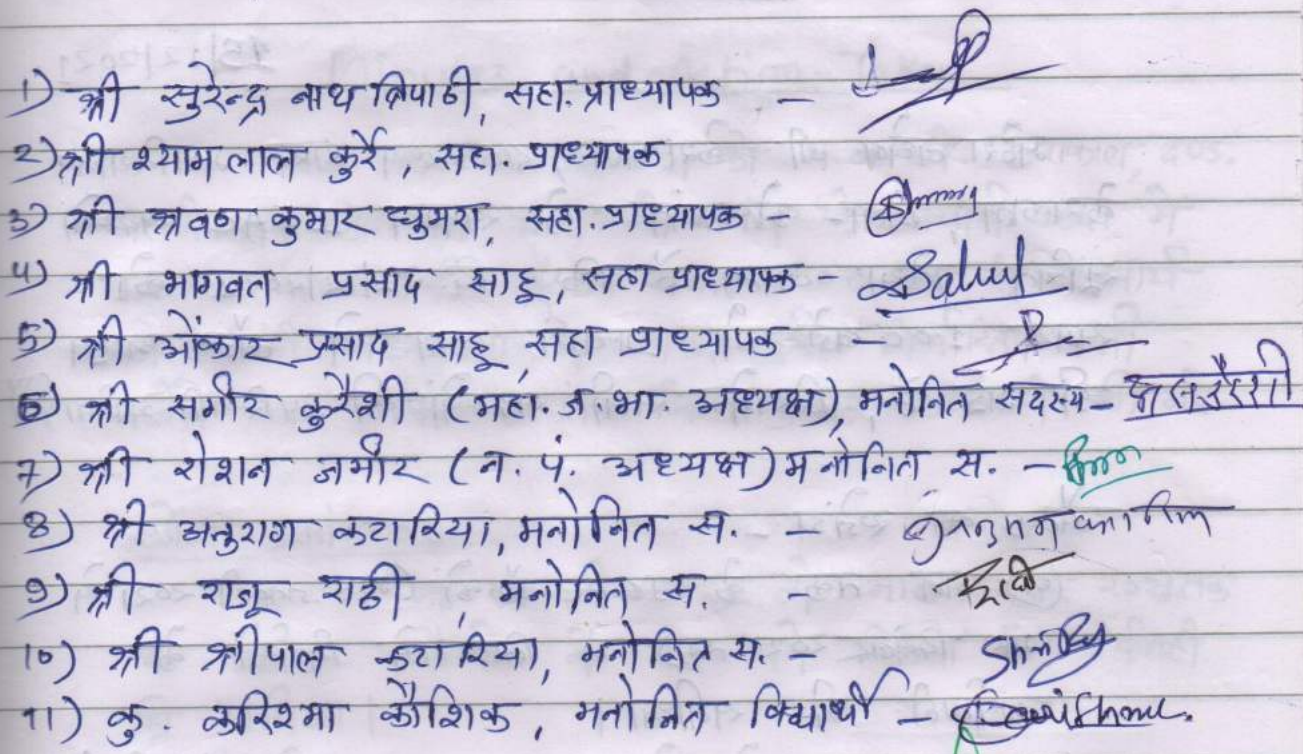 1) श्री सुरेन्द्र नाथ त्रिपाठी, सहा. प्राध्यापक -
2) श्री श्याम लाल कुर्रे, सहा. प्राध्यापक
3) श्री श्रवण कुमार घुमरा, सहा. प्राध्यापक -
4) श्री भागवत प्रसाद साहू, सहा प्राध्यापक - Sahu
5) श्री ओंकार प्रसाद साहू, सहा प्राध्यापक -
6) श्री समीर कुरैशी (महा. ज. भा. अध्यक्ष), मनोनित सदस्य -
7) श्री रोशन जमीर (न. पं. अध्यक्ष) मनोनित स. -
8) श्री अनुराग कटारिया, मनोनित स. -
9) श्री राजू राठी, मनोनित स. -
10) श्री श्रीपाल कटारिया, मनोनित स. -
11) कु. करिश्मा कौशिक, मनोनित विद्यार्थी -